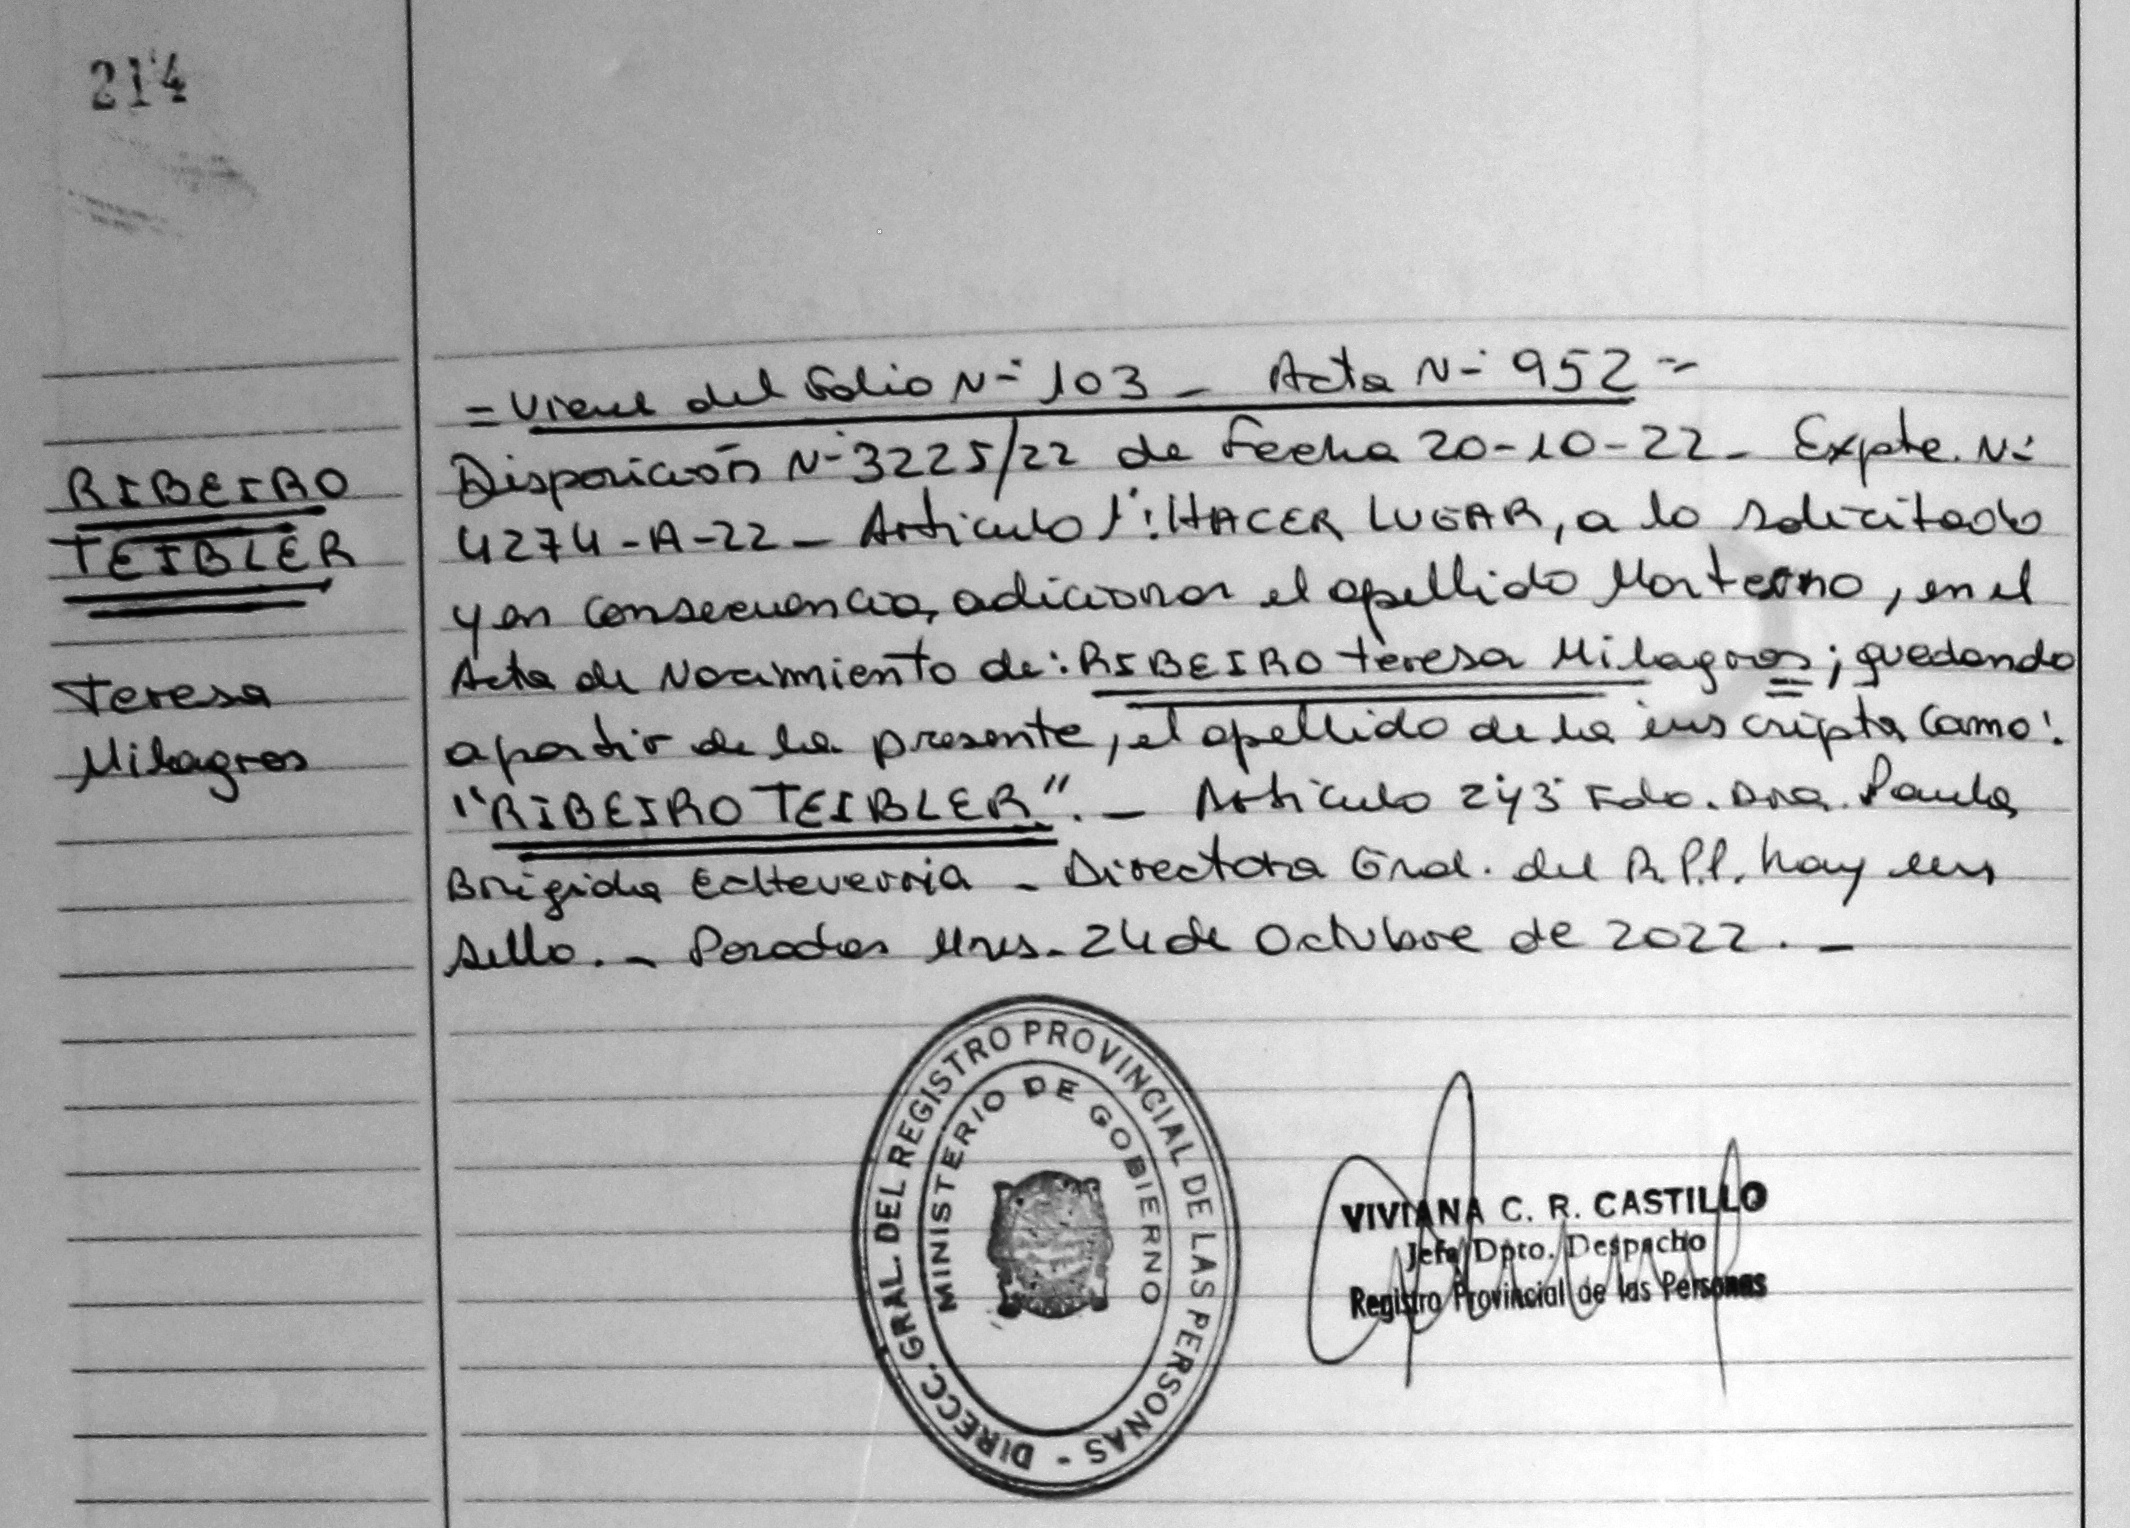 214
RIBEIRO
TEIBLER
Teresa
Milagros
= Viene del Folio Nº 103 _ Acta Nº 952 =
Disposición Nº 3225/22 de Fecha 20-10-22 _ Expte. Nº
4274-A-22 _ Artículo 1º: HACER LUGAR, a lo solicitado
y en consecuencia, adicionar el apellido Materno, en el
Acta de Nacimiento de: RIBEIRO Teresa Milagros; quedando
a partir de la presente, el apellido de la inscripta como:
"RIBEIRO TEIBLER". _ Artículo 2º y 3º Fdo. Dra. Paula
Brigida Echeverria _ Directora Gral. del R.P.P. hay un
sello. _ Posadas Mnes. 24 de Octubre de 2022. _
DIRECC. GRAL. DEL REGISTRO PROVINCIAL DE LAS PERSONAS -
MINISTERIO DE GOBIERNO
VIVIANA C. R. CASTILLO
Jefa Dpto. Despacho
Registro Provincial de las Personas